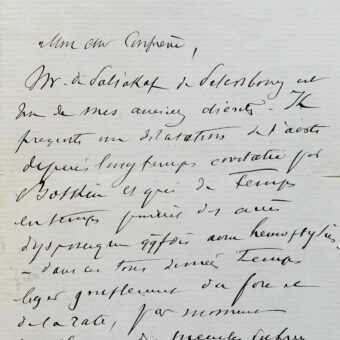 Mon cher Confrère,
Mr. de de Petersbourg est
un de mes anciens clients. Il
présente une dilatation de l'aorte
depuis longtemps constatée par
Botkin et qui de temps
en temps produit des accès
dyspneiques qqfois avec hemoptysies
dans ces tous derniers temps
leger gonflement du foie et
de la rate, par moment